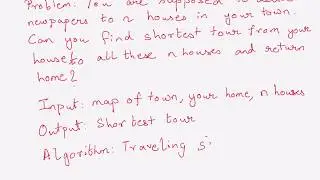 Problem: You are supposed to
newspapers to n houses in your town.
Can you find shortest tour from your
house to all these n houses and return
home?
Input: map of town, your home, n houses
Output: Shortest tour
Algorithm: Traveling s